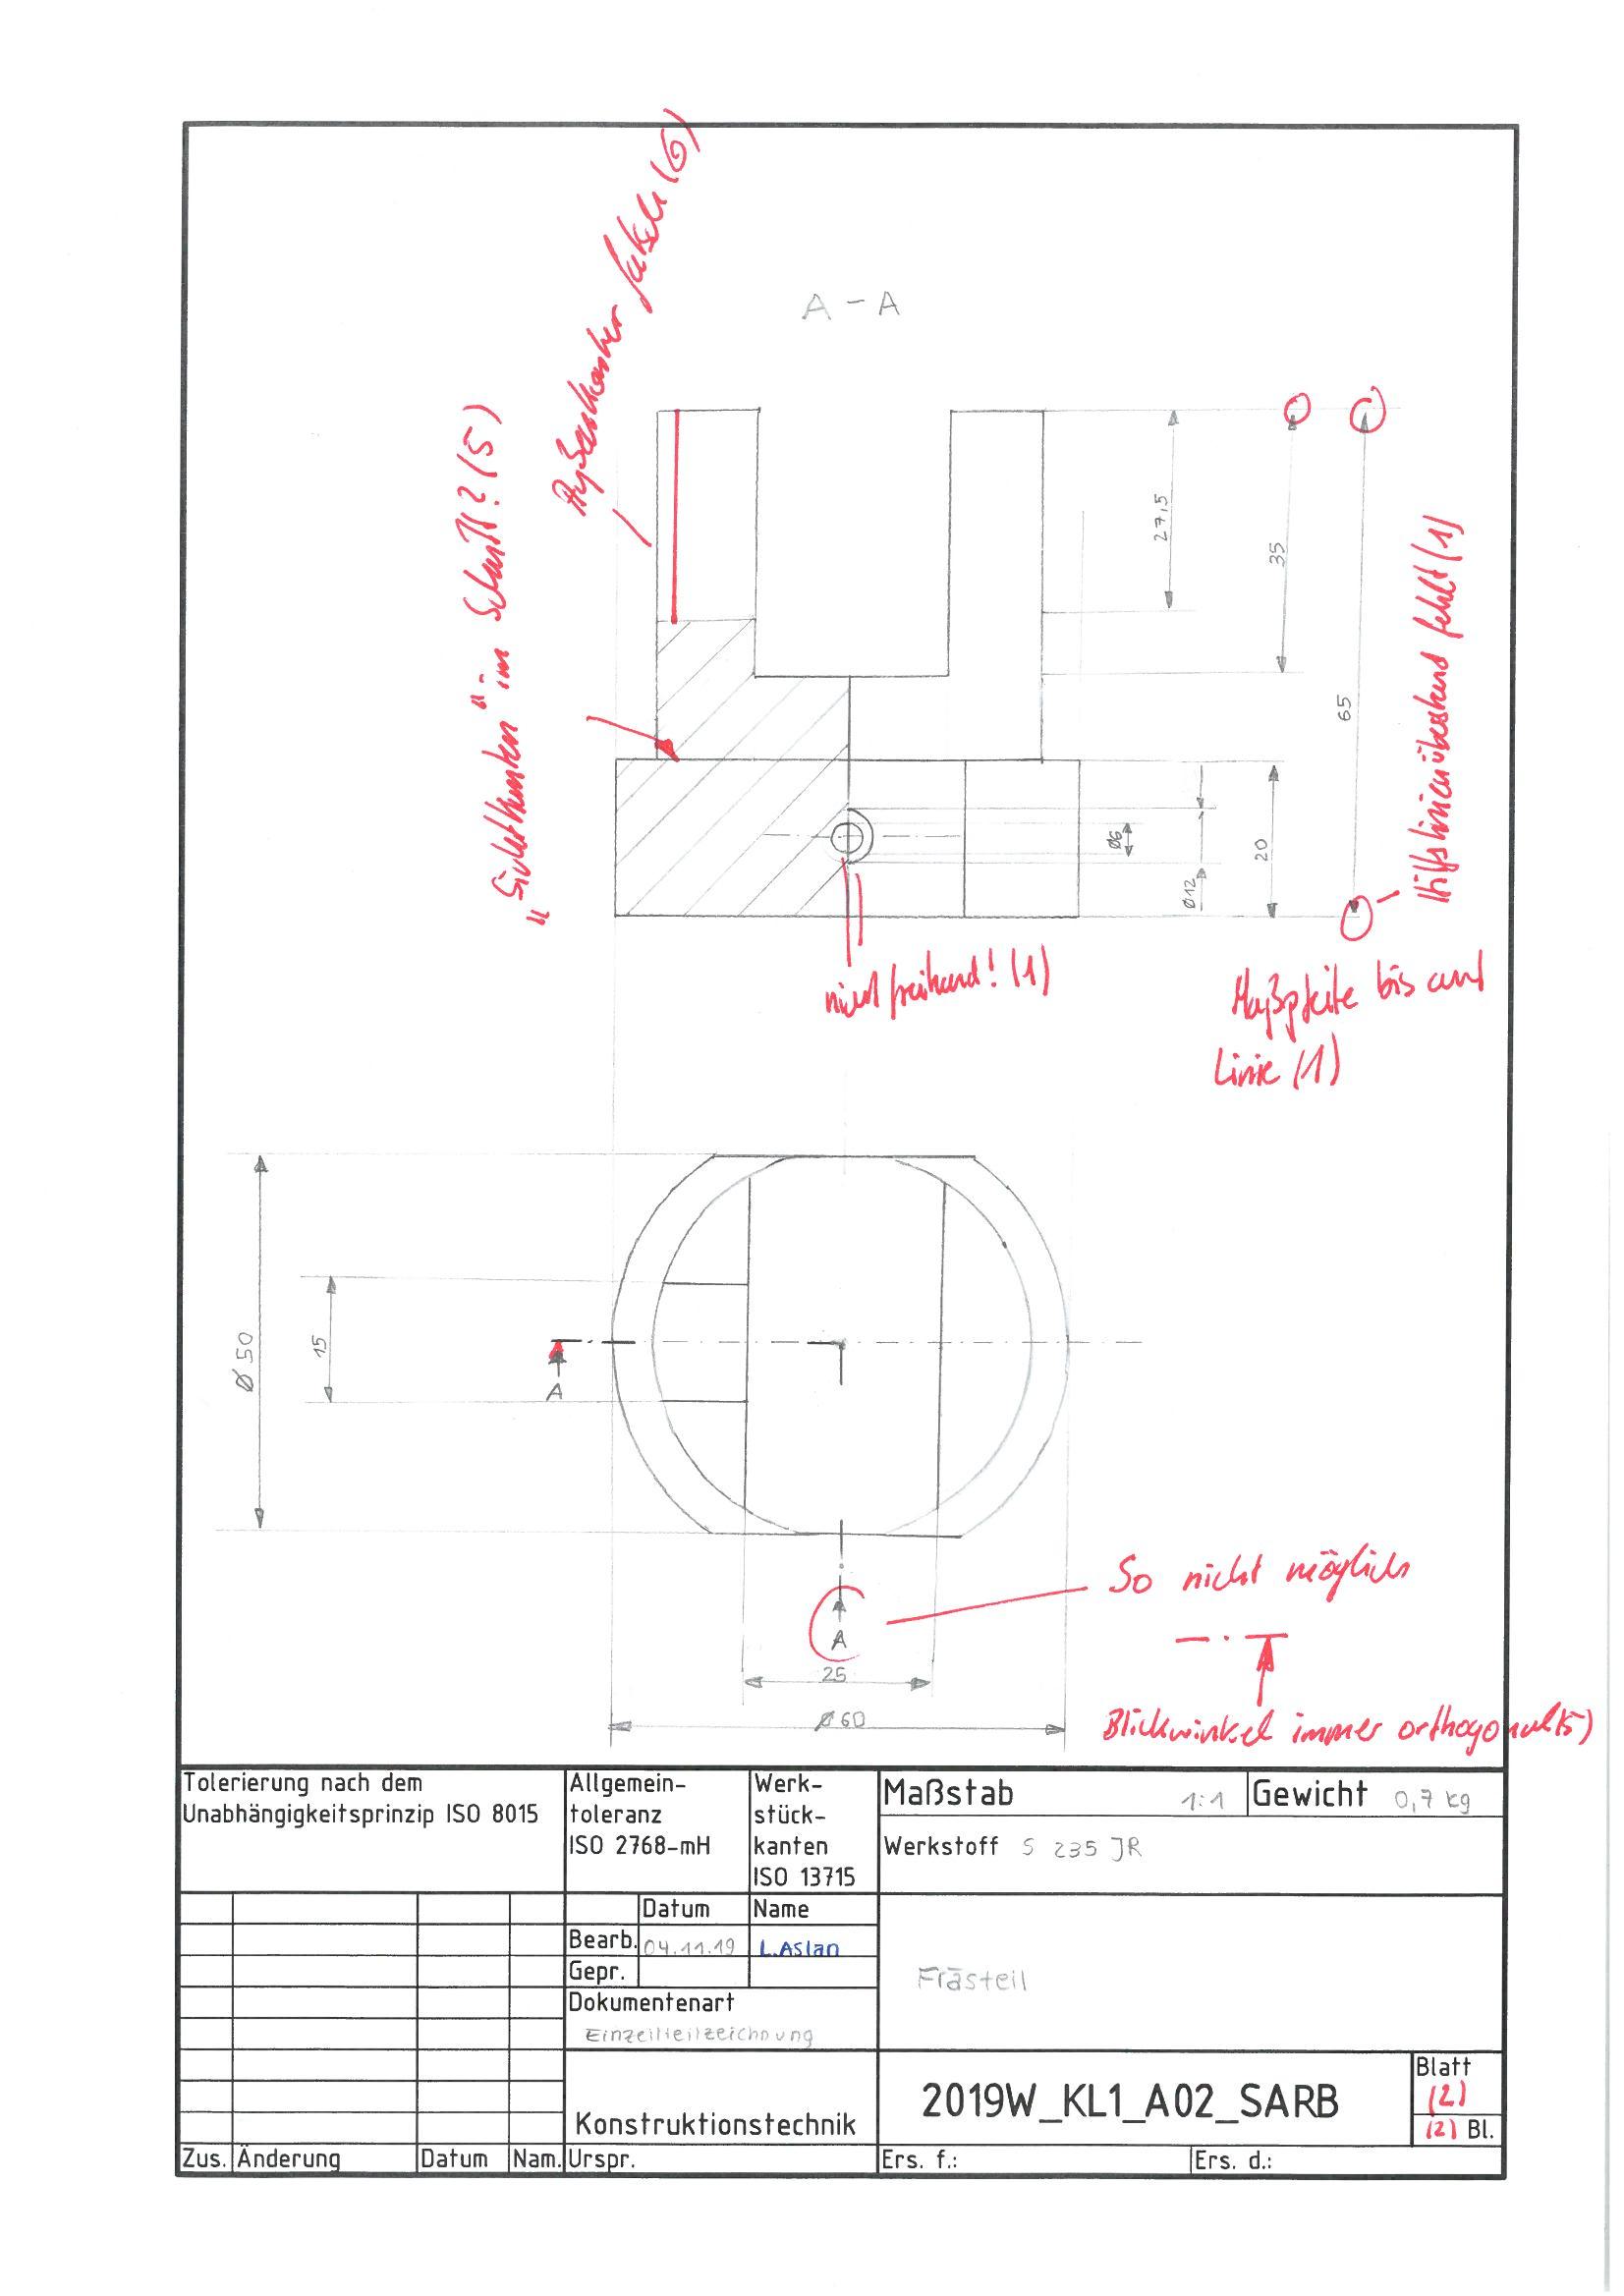 Außenkanten fehlen (6)
A - A
"Sichtkanten" im Schnitt? (5)
27,5
35
65
Hilfslinienüberstand fehlt (1)
Ø6
Ø12
20
nicht freihand! (1)
Maßpfeile bis auf
Linie (1)
Ø 50
15
A
A
So nicht möglich
25
Ø 60
Blickwinkel immer orthogonal (5)
Tolerierung nach dem
Unabhängigkeitsprinzip ISO 8015
Allgemein-
toleranz
ISO 2768-mH
Werk-
stück-
kanten
ISO 13715
Maßstab 1:1
Gewicht 0,7 kg
Werkstoff S 235 JR
Datum Name
Bearb. 04.11.19 L.Aslan
Gepr.
Dokumentenart
Einzelteilzeichnung
Frästeil
Konstruktionstechnik
2019W_KL1_A02_SARB
Blatt
(2)
(2) Bl.
Zus. Änderung Datum Nam. Urspr. Ers. f.: Ers. d.: